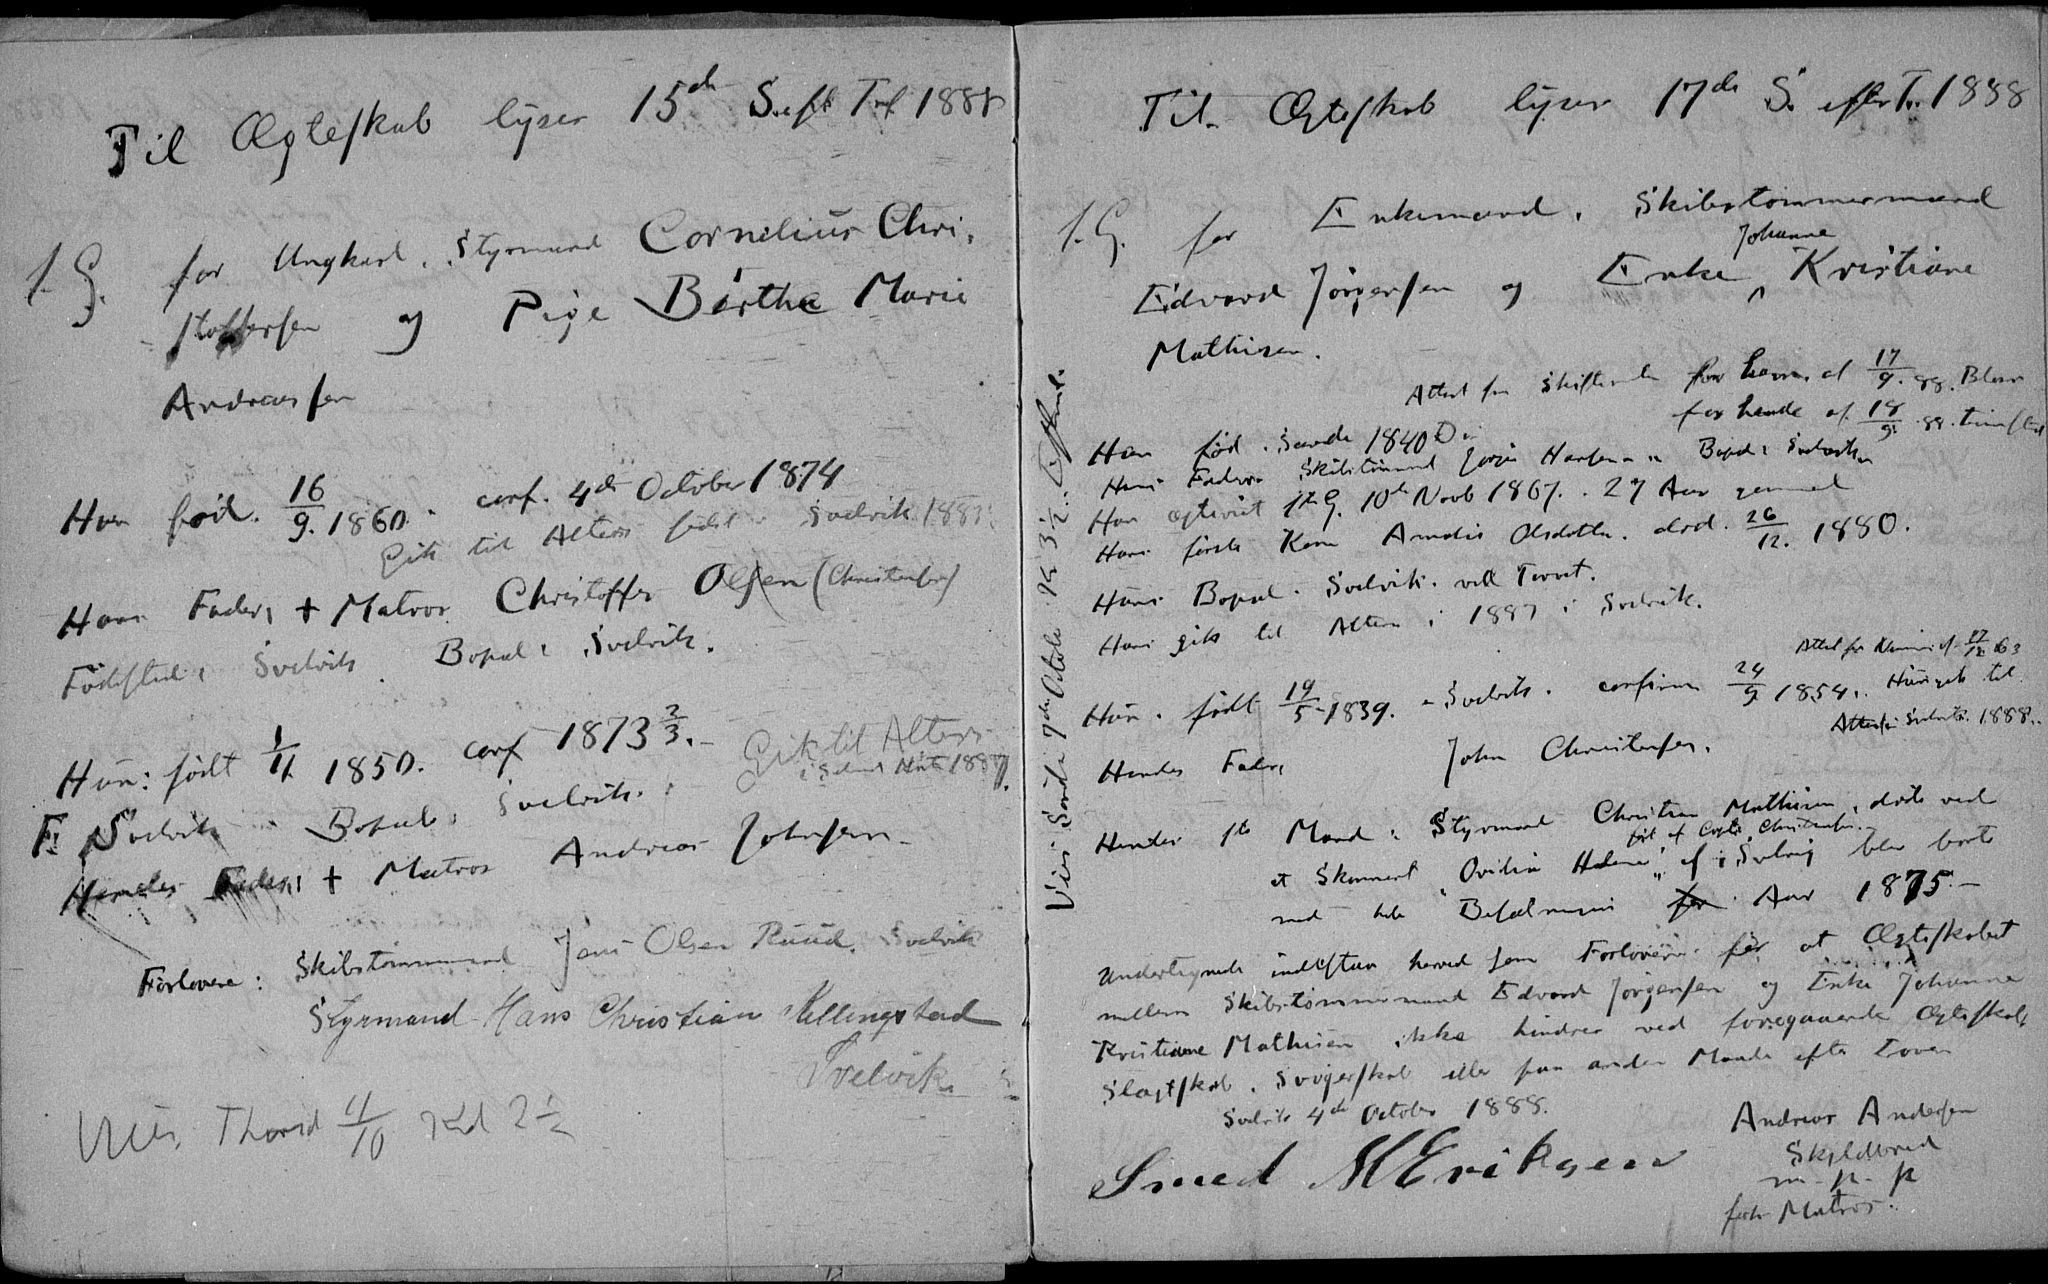 Til Ægteskab lyses 15de S. eft Tref 1888
1. G. for Ungkarl, Styrmand Cornelius Chri-
stoffersen og Pige Berthe Marie
Andreassen
Han fød. 16/9. 1860. conf. 4de October 1874
Gik til Alters sidst i Svelvik 188
Hans Fader, + Matros Christoffer Olsen (Christensen)
Fødested: Svelvik Bopæl: Svelvik.
Hun: født 1/11 1850. conf 1873 2/3.
Gik til Alters
i 1887.
F. Svelvik Bopæl: Svelvik.
Hendes Fader: + Matros Andreas Johnsen
Forlovere: Skibstømmermand Jens Olsen Ruud. Svelvik
Styrmand Hans Christian Kellingstad
Svelvik
Vies Thorsd 4/10 Kl 2 1/2
Til Ægteskab lyses 17de S. efter Tr. 1888
1. G. for Enkemand, Skibstømmermand
Johanne
Edvard Jørgensen og Enke ^ Kristiane
Mathisen.
Attest fra Skifteret for ham af 17/9. 88.
for hende af 18/9. 88.
Han fød. Sande 1840
Hans Fader Skibstømmd Jørgen Hansen Bopæl: Svelvik
Han ægteviet 1ste G. 10de Novb 1867. 27 Aar gammel
Hans første Kone Olsdatter. død. 26/12. 1880.
Hans Bopæl. Svelvik. ved Tørvet.
Han gik til Alters i 1887 i Svelvik.
Attest for
Hun. født 19/5 1839. Svelvik. confirm 24/9 1854. Hun gik til
Alters i Svelvik. 1888.
Hendes Fader, John Christensen.
Hendes 1ste Mand: Styrmand Christian Mathisen, døde ved
ført af Capt. Christensen
at Skonnert "Ovidia Helene" af Svelvig blev borte
med hele Besætningen Aar 1875.
Undertegnede indestaar herved som Forlovere for at Ægteskabet
mellem Skibstømmermand Edvard Jørgensen og Enke Johanne
Kristiane Mathisen ikke hindres ved foregaaende Ægteskab,
Slægtskab, Svogerskab eller paa anden Maade efter Loven
Svelvik 4de October 1888.
Andreas Andersen
Skjeldbred
m. p. p
forh Matros.
Smed M Eriksen
Vies Søndag 7de Octobr. Kl 3 1/2. Efterm.